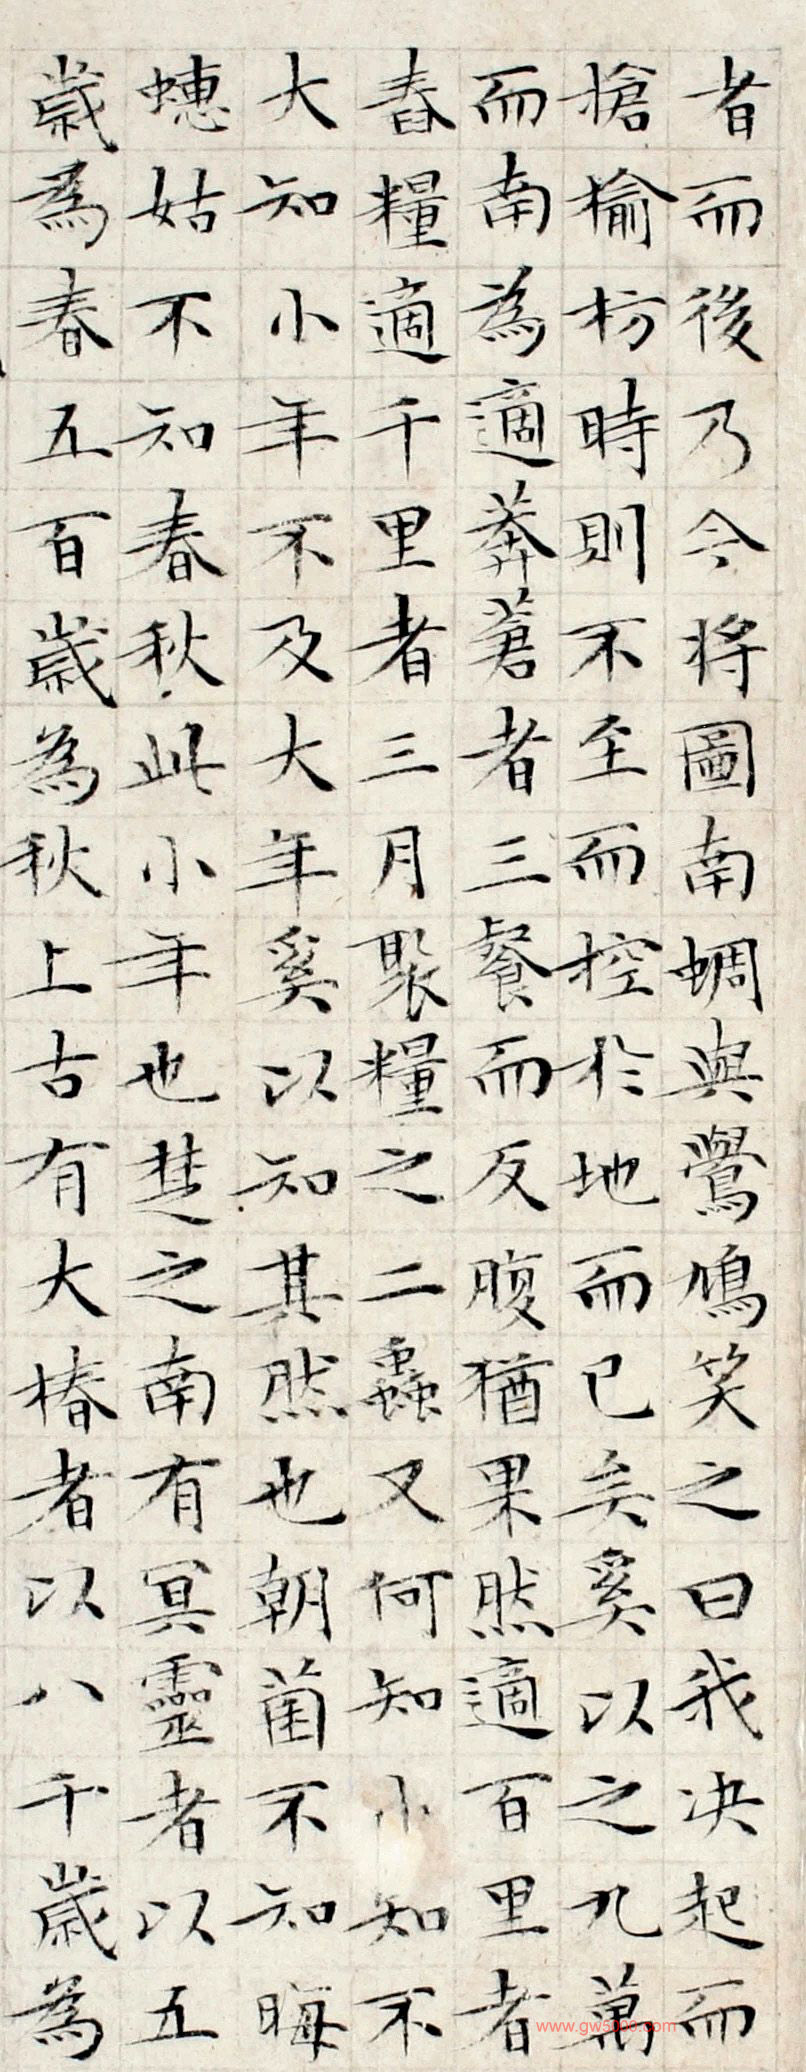 者而後乃今將圖南蜩與鷽鳩笑之曰我决起而
搶榆枋時則不至而控於地而已矣奚以之九萬
而南為適莽蒼者三餐而反腹猶果然適百里者
舂糧適千里者三月聚糧之二蟲又何知小知不
大知小年不及大年奚以知其然也朝菌不知晦
蟪姑不知春秋此小年也楚之南有冥靈者以五
歲為春五百歲為秋上古有大椿者以八千歲為
www.gw5000.com